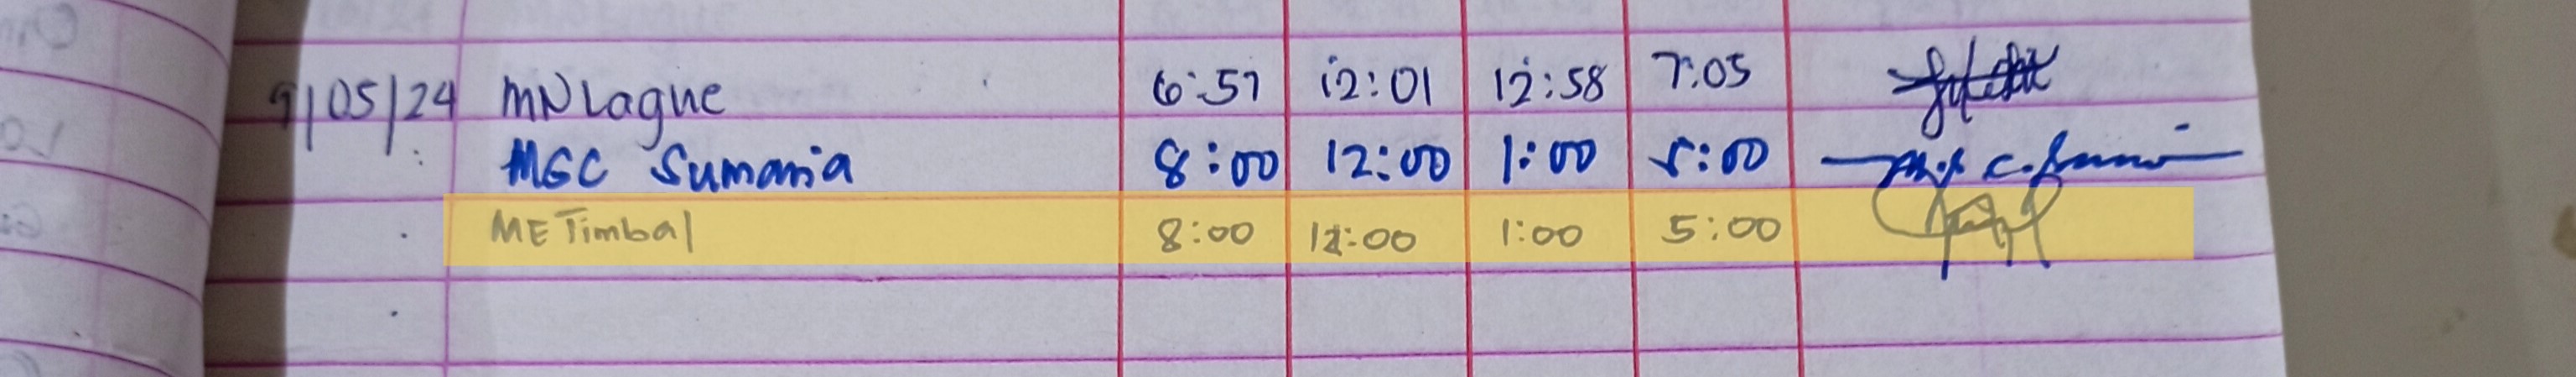 9/05/24 MN Lague 6:57 12:01 12:58 7:05
MGC Sumania 8:00 12:00 1:00 5:00
ME Timbal 8:00 12:00 1:00 5:00